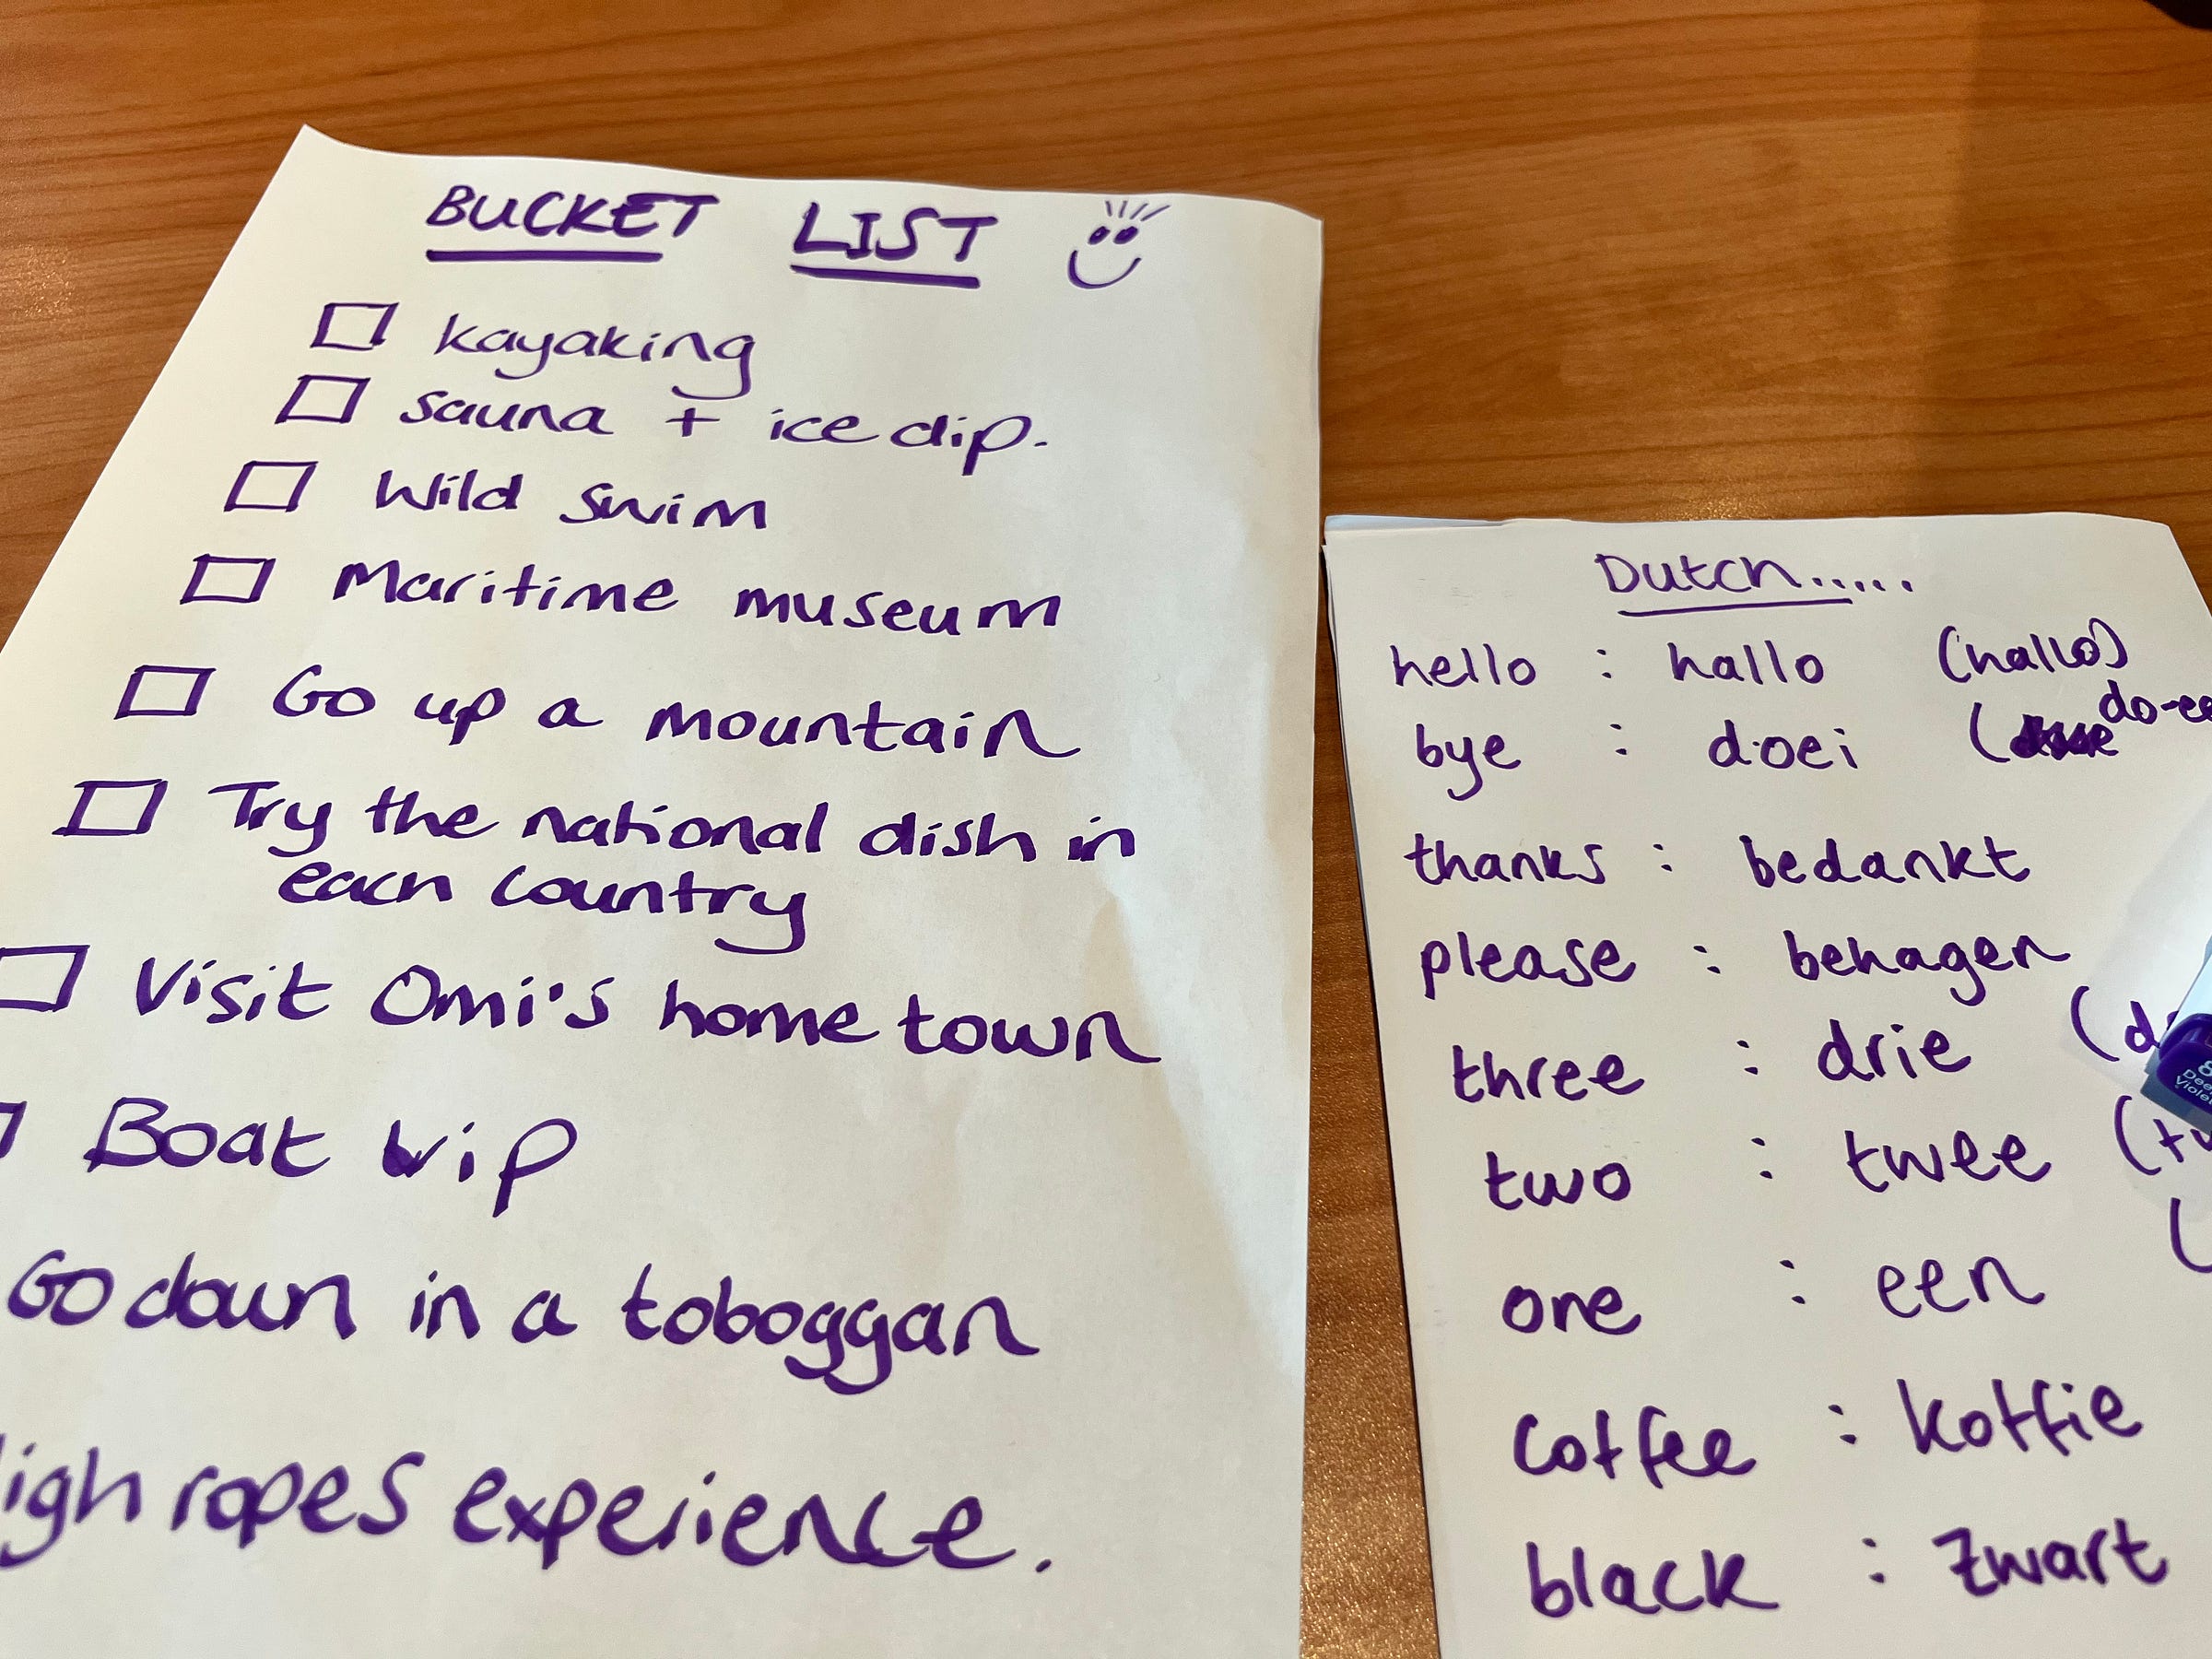 BUCKET LIST
kayaking
sauna + ice dip.
Wild swim
Maritime museum
Go up a mountain
Try the national dish in
each country
Visit Omi's home town
Boat trip
Go down in a toboggan
ropes experience.
Dutch.....
hello : hallo (hallo)
bye : doei (
thanks : bedankt
please : behagen
three : drie
two : twee
one : een
coffee : koffie
black : zwart